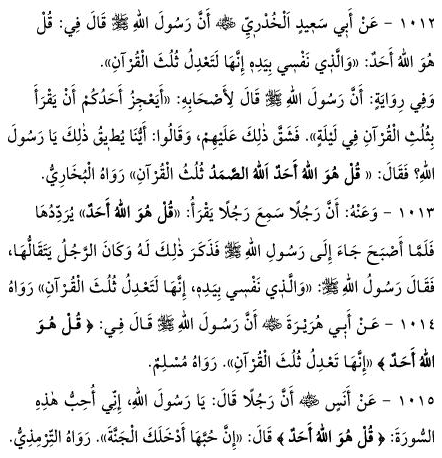 ١٠١٢ - عَنْ أَبِي سَعِيدٍ اَلْخُدْرِيِّ ﷺ أَنَّ رَسُولَ اللهِ ﷺ قَالَ فِي: قُلْ
هُوَ اللهُ أَحَدٌ: «وَالَّذِي نَفْسِي بِيَدِهِ إِنَّهَا لَتَعْدِلُ ثُلُثَ الْقُرْآنِ».
وَفِي رِوَايَةٍ: أَنَّ رَسُولَ اللهِ ﷺ قَالَ لِأَصْحَابِهِ: «أَيَعْجِزُ أَحَدُكُمْ أَنْ يَقْرَأَ
بِثُلُثِ الْقُرْآنِ فِي لَيْلَةٍ». فَشَقَّ ذٰلِكَ عَلَيْهِمْ، وَقَالُوا: أَيُّنَا يُطِيقُ ذٰلِكَ يَا رَسُولَ
اللهِ؟ فَقَالَ: « قُلْ هُوَ اللهُ أَحَدٌ اَللهُ الصَّمَدُ ثُلُثُ الْقُرْآنِ» رَوَاهُ الْبُخَارِيُّ.
١٠١٣ - وَعَنْهُ: أَنَّ رَجُلًا سَمِعَ رَجُلًا يَقْرَأُ: «قُلْ هُوَ اللهُ أَحَدٌ» يُرَدِّدُهَا
فَلَمَّا أَصْبَحَ جَاءَ إِلَى رَسُولِ اللهِ ﷺ فَذَكَرَ ذٰلِكَ لَهُ وَكَانَ الرَّجُلُ يَتَقَالُّهَا،
فَقَالَ رَسُولُ اللهِ ﷺ: «وَالَّذِي نَفْسِي بِيَدِهِ، إِنَّهَا لَتَعْدِلُ ثُلُثَ الْقُرْآنِ» رَوَاهُ
١٠١٤ - عَنْ أَبِي هُرَيْرَةَ ﷺ أَنَّ رَسُولَ اللهِ ﷺ قَالَ فِي: ﴿ قُلْ هُوَ
اللهُ أَحَدٌ ﴾ «إِنَّهَا تَعْدِلُ ثُلُثَ الْقُرْآنِ». رَوَاهُ مُسْلِمٌ.
١٠١٥ - عَنْ أَنَسٍ ﷺ أَنَّ رَجُلًا قَالَ: يَا رَسُولَ اللهِ، إِنِّي أُحِبُّ هٰذِهِ
السُّورَةَ: ﴿ قُلْ هُوَ اللهُ أَحَدٌ ﴾ قَالَ: «إِنَّ حُبَّهَا أَدْخَلَكَ الْجَنَّةَ». رَوَاهُ التِّرْمِذِيُّ.